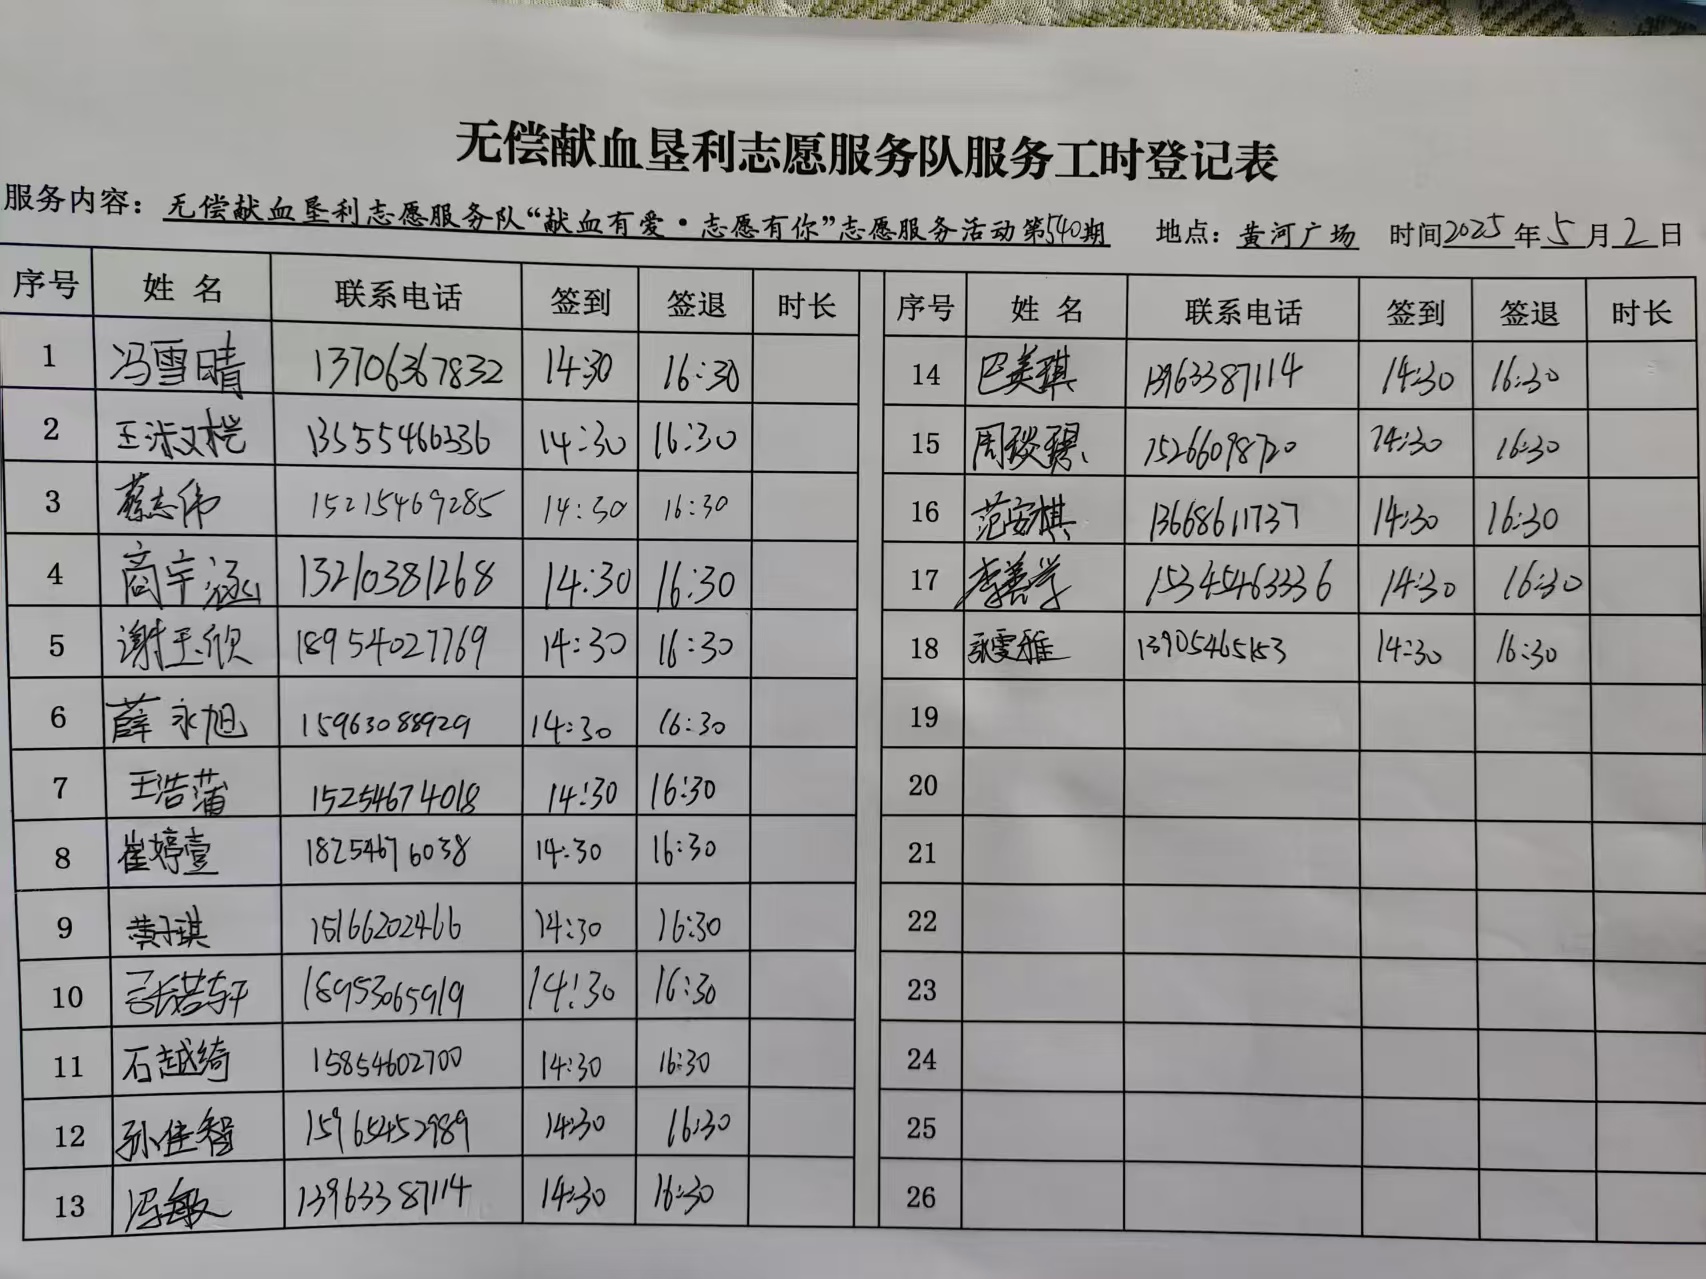 无偿献血垦利志愿服务队服务工时登记表
服务内容：无偿献血垦利志愿服务队“献血有爱·志愿有你”志愿服务活动第540期 地点：黄河广场 时间2025年5月2日
序号 姓名 联系电话 签到 签退 时长 序号 姓名 联系电话 签到 签退 时长
1 冯雪晴 13706367832 14:30 16:30 14 巴美琪 13963387114 14:30 16:30
2 王淑桤 13555466336 14:30 16:30 15 周琰璟 15266098720 14:30 16:30
3 蔡志伟 15215469285 14:30 16:30 16 范安棋 13668611737 14:30 16:30
4 商宇涵 13210381268 14:30 16:30 17 李善学 15345463336 14:30 16:30
5 谢玉欣 18954027769 14:30 16:30 18 张雯雅 13905465153 14:30 16:30
6 薛永旭 15963088929 14:30 16:30 19
7 王浩蒲 15254674018 14:30 16:30 20
8 崔婷壹 18254676038 14:30 16:30 21
9 黄子琪 15166202466 14:30 16:30 22
10 若轩 18953065919 14:30 16:30 23
11 石越绮 15854602700 14:30 16:30 24
12 孙佳智 15965452989 14:30 16:30 25
13 冯敏 13963387114 14:30 16:30 26